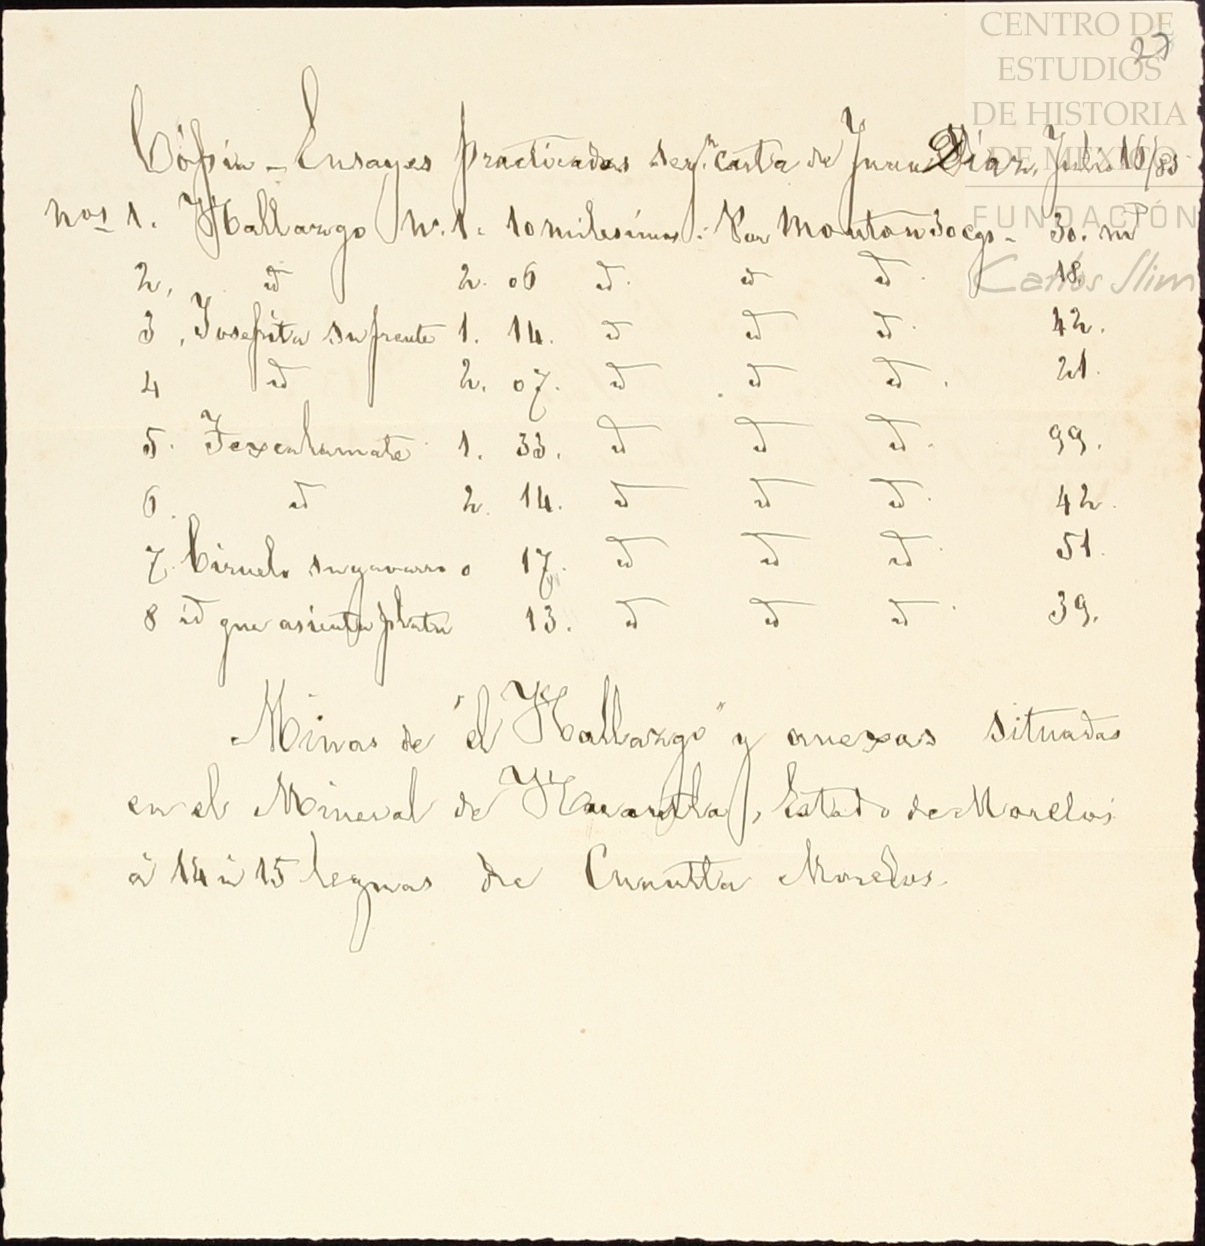 CENTRO DE
ESTUDIOS
DE HISTORIA
DE MÉXICO
FUNDACIÓN
Carlos Slim
27
Cópia - Ensayes practicados seg.n carta de Juan Diaz, Julio 16/85
nos 1. Hallazgo Nº 1. 10 milesimos: Por Monton 30 cgs - 30. m
2, id 2. 06 id id id. 18.
3, Josefita su frente 1. 14. id id id. 42.
4 id 2. 07. id id id. 21.
5. Texcalamate 1. 33. id id id. 99.
6. id 2. 14. id id id. 42.
7. Ciruelo su gavarro o 17. id id id. 51.
8 id que asienta plata 13. id id id. 39.
Minas de "el Hallazgo" y anexas situadas
en el Mineral de Huautla, Estado de Morelos
á 14 ù 15 leguas de Cuautla Morelos.